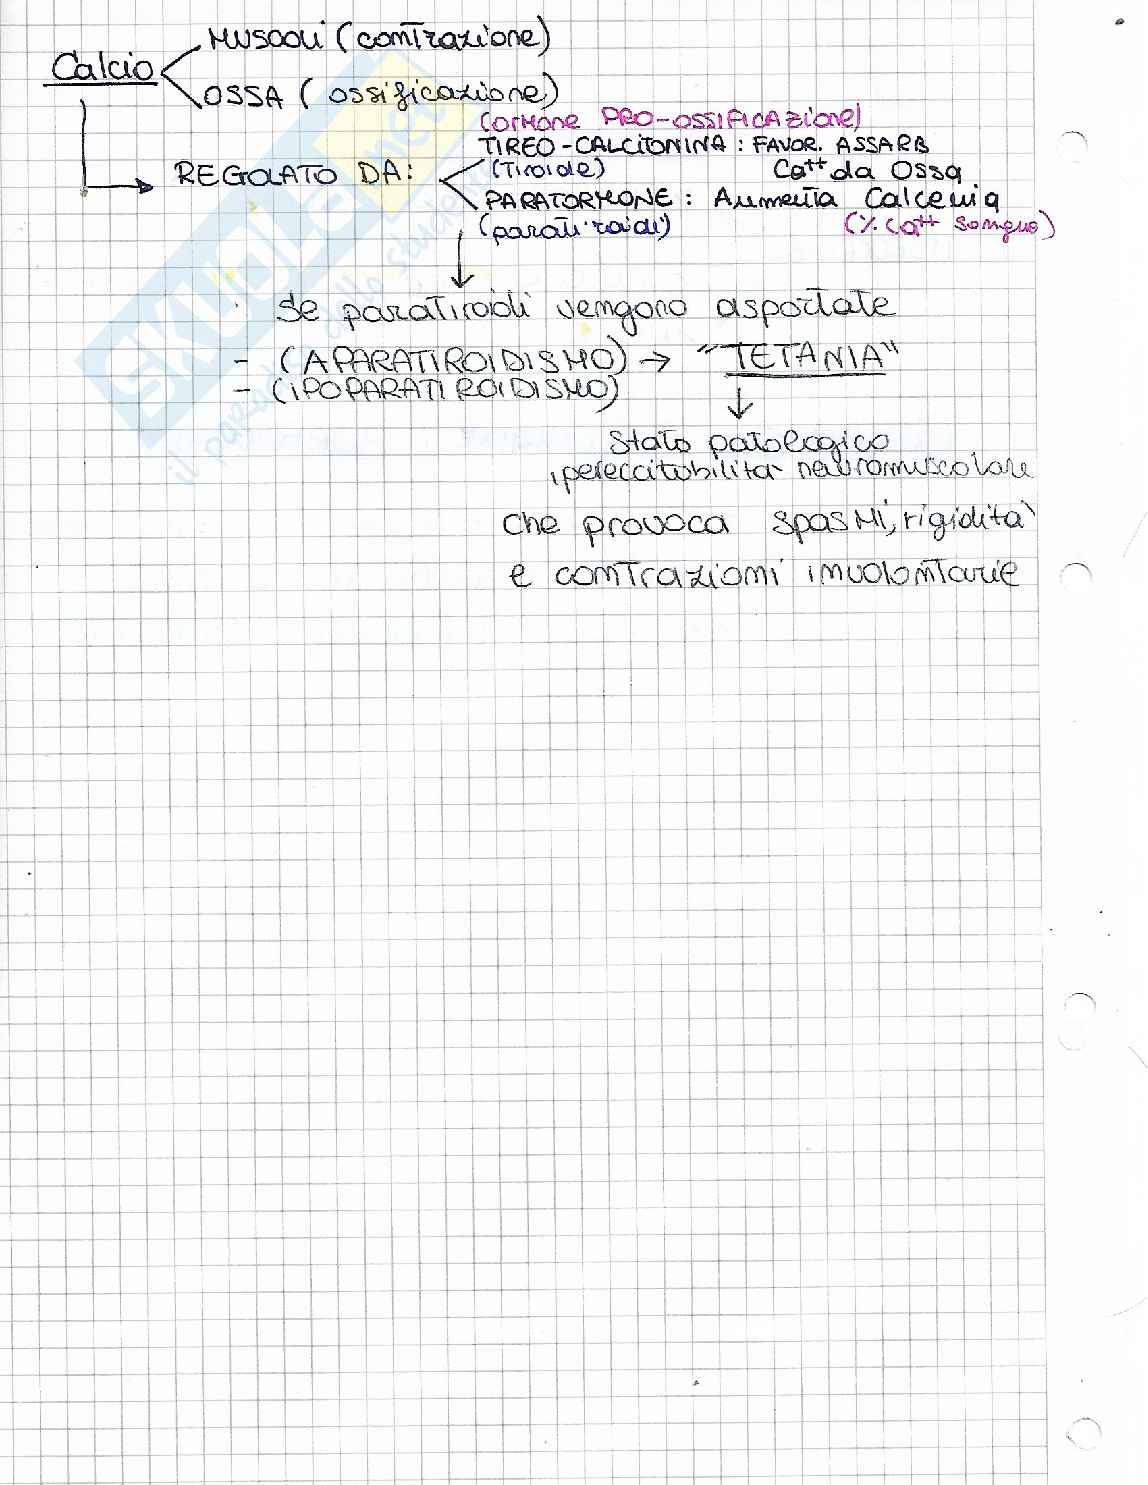 Calcio
MUSCOLI (contrazione)
OSSA (ossificazione)
(ormone PRO-OSSIFICAZIONE)
TIREO-CALCITONINA : FAVOR. ASSARB
(Tiroide) Ca++ da Ossa
REGOLATO DA:
PARATORMONE : Aumenta Calcemia
(paratiroidi) (% Ca++ sangue)
Se paratiroidi vengono asportate
- (APARATIROIDISMO) → "TETANIA"
- (IPOPARATIROIDISMO)
Stato patologico
ipereccitabilità neuromuscolare
che provoca spasmi, rigidità
e contrazioni involontarie
SKUOLA.net